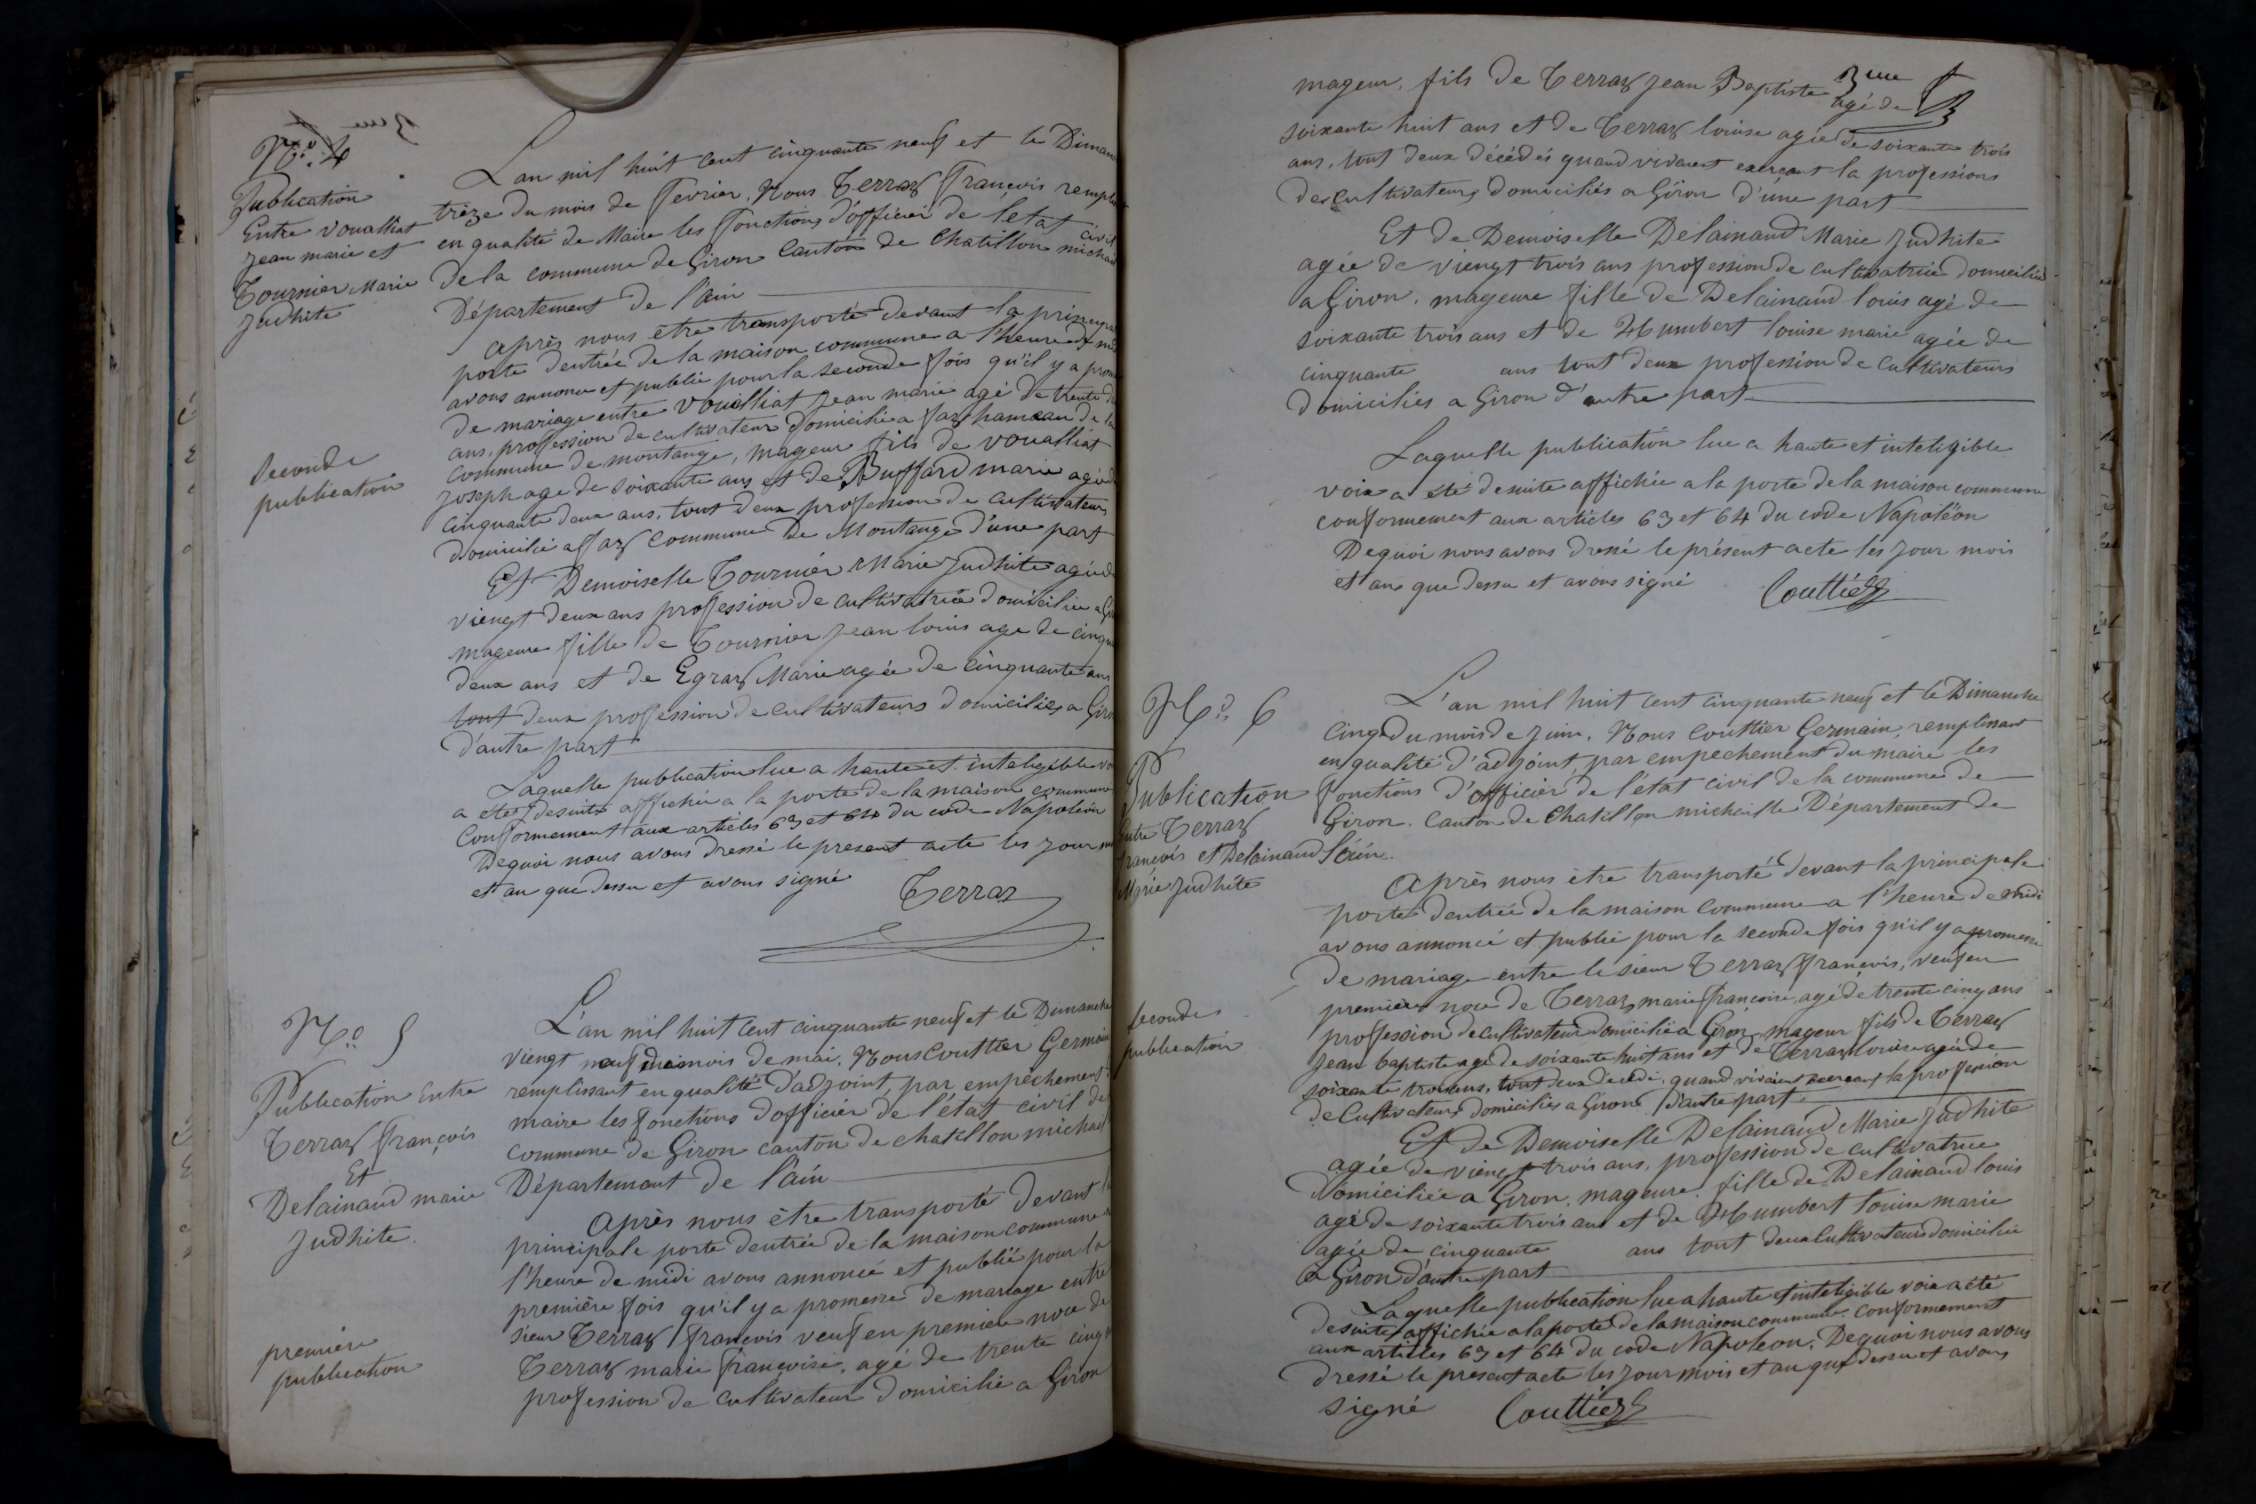 N.o 4
Publication
Entre Voualliat
jean marie et
Tournier Marie
Judhite
Seconde
publication
L'an mil huit cent cinquante neuf et le Diman
trèze du mois de Fevrier, Nous Terraz François rempli
en qualité de Maire les Fonctions d'officier de l'état civil
De la commune de Giron Canton de Chatillon michail
Département de l'ain
Après nous être transporté devant la principa
porte dentrée de la maison commune a l'heure de mi
avons annonce et publié pour la seconde fois qu'il y a prom
de mariage entre Vouilliat jean marie agé de trente
ans, profession de cultivateur domicilié a hameau de la
commune de montange, mageur fils de voualliat
joseph age de soixante ans et de Buffard marie agée de
cinquante deux ans, tout deux profession de cultivateurs
domicilié a commune De Montange d'une part
Et Demoiselle Tournier Marie Judhite agée de
viengt deux ans profession de cultivatrice domiciliée a Gi
mageure fille de Tournier jean louis age de cinqu
deux ans et de Egraz Marie agée de cinquante ans
tout deux profession de cultivateurs domiciliés a Giro
d'autre part
Laquelle publication lue a haute et inteligible vo
a été desuite affichée a la porte de la maison commune
Conformement aux articles 63 et 64 du code Napoléon
Dequoi nous avons dressé le present acte les jour
et an que dessu et avons signé
Terraz
N.o 5
Publication Entre
Terraz françois
Et
Delainaud marie
Judhite.
première
publication
L'an mil huit cent cinquante neuf et le Dimanche
viengt neuf du mois de mai. Nous Couttier Germain
remplissant en qualité d'adjoint, par empêchement
maire les fonctions d'officier de l'état civil de
commune de Giron canton de chatillon michail
Département de l'ain
Après nous être transporté devant
principale porte dentrée de la maison commune
l'heure de midi avons annoncé et publié pour la
première fois qu'il y a promesse de mariage entre
sieur Terraz françois veuf en premiere noce de
Terraz marie françoise, agé de trente cinq
profession de cultivateur domicilié a Giron
3me
mageur, fils de Terraz jean Baptiste agé de
soixante huit ans et de Terraz louise agée de soixante trois
ans, tout deux décédés quand vivaient exerçant la professions
de cultivateurs domiciliés a Giron d'une part
Et de Demoiselle Delainaud Marie Judhite
agée de viengt trois ans profession de cultivatrice domiciliée
a Giron. mageure fille de Delainaud louis agé de
soixante trois ans et de Humbert louise marie agée de
cinquante ans tout deux profession de cultivateurs
domiciliés a Giron d'autre part
Laquelle publication lue a haute et inteligible
voix a été desuite affichée a la porte de la maison commune
conformement aux articles 63 et 64 du code Napoléon
Dequoi nous avons dressé le présent acte les jour mois
et ans que dessu et avons signé
Couttier
N.o 6
Publication
Entre Terraz
François et Delainaud
Marie Judhite
seconde
publication
L'an mil huit cent cinquante neuf et le Dimanche
cinq du mois de juin, Nous Couttier Germain, remplissant
en qualité d'adjoint par empechement du maire les
fonctions d'officier de l'état civil de la commune de
Giron. Canton de Chatillon michaille Département de
l'ain.
Après nous être transporté devant la principale
porte dentrée de la maison commune a l'heure de midi
avons annoncé et publié pour la seconde fois qu'il y a promesse
de mariage entre le sieur Terraz François, veuf en
première noce de Terraz marie françoise, agé de trente cinq ans
profession de cultivateur domicilié a Giron mageur fils de Terraz
jean baptiste agé de soixante huit ans et de Terraz louise agée de
soixante trois ans, tout deux décédé, quand vivaient exercant la profession
de Cultivateurs domiciliés a Giron d'autre part
Et de Demoiselle Delainaud Marie Judhite
agée de viengt trois ans, profession de cultivatrice
Domiciliée a Giron. mageure. fille de Delainaud louis
agé de soixante trois ans et de Humbert louise marie
agée de cinquante ans tout deux cultivateurs domicilie
a Giron d'autre part
Laquelle publication lue a haute et inteligible voix a été
desuite affichée a la porte de la maison commune conformement
aux articles 63 et 64 du code Napoléon. Dequoi nous avons
dressé le présent acte les jour mois et an que dessu et avons
signé
Couttier